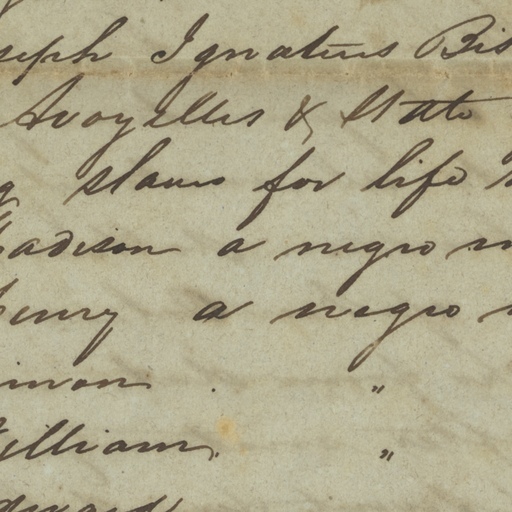 seph Ignatius Bis
Avoyelles & State
g slaves for life
Madison a negro m
Henry a negro
imon "
William, "
dward